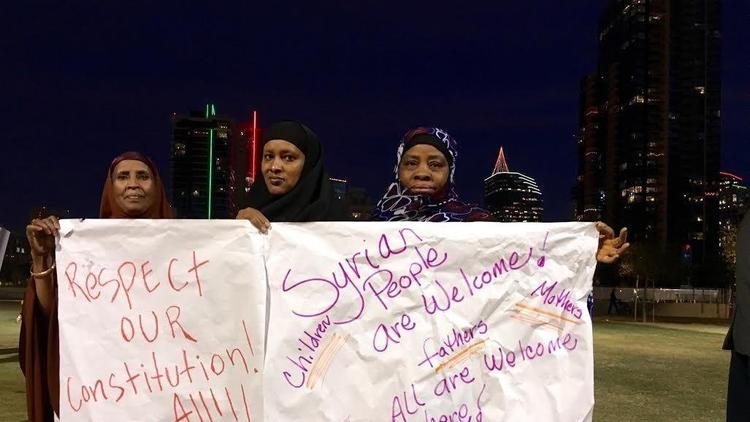 RESPECT
OUR
Constitution!
All!!!
Syrian
People
are Welcome!
Children
fathers
Mothers
All are Welcome
here!